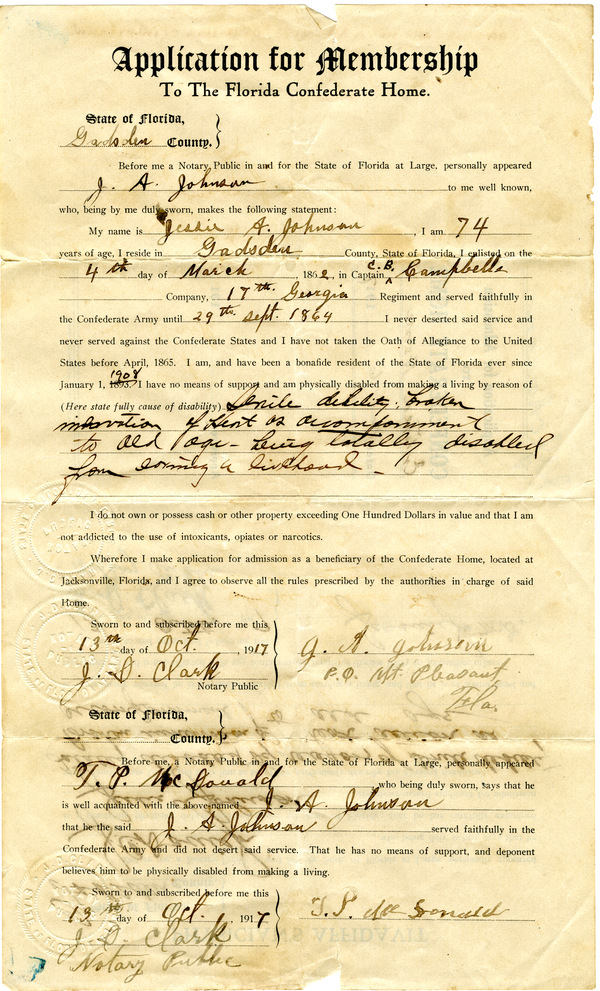 Application for Membership
To The Florida Confederate Home.
State of Florida,
Gadsden County.
Before me a Notary Public in and for the State of Florida at Large, personally appeared
J. A. Johnson to me well known,
who, being by me duly sworn, makes the following statement:
My name is Jessie A. Johnson, I am 74
years of age, I reside in Gadsden County, State of Florida, I enlisted on the
4th day of March, 1862, in Captain C.B. Campbells
Company, 17th. Georgia Regiment and served faithfully in
the Confederate Army until 29th. Sept. 1864 I never deserted said service and
never served against the Confederate States and I have not taken the Oath of Allegiance to the United
States before April, 1865. I am, and have been a bonafide resident of the State of Florida ever since
1908
January 1, 1893. I have no means of support and am physically disabled from making a living by reason of
(Here state fully cause of disability) Senile debility, broken
of as accompanment
to old age - being totally disabled
from earning a livlihood -
I do not own or possess cash or other property exceeding One Hundred Dollars in value and that I am
not addicted to the use of intoxicants, opiates or narcotics.
Wherefore I make application for admission as a beneficiary of the Confederate Home, located at
Jacksonville, Florida, and I agree to observe all the rules prescribed by the authorities in charge of said
Home.
Sworn to and subscribed before me this
13th day of Oct., 1917
J. D. Clark
Notary Public
J. A. Johnson
P.O. Mt. Pleasant
Fla.
State of Florida,
County.
Before me, a Notary Public in and for the State of Florida at Large, personally appeared
T. P. McDonald who being duly sworn, says that he
is well acquainted with the above named J. A. Johnson
that he the said J. A. Johnson served faithfully in the
Confederate Army and did not desert said service. That he has no means of support, and deponent
believes him to be physically disabled from making a living.
Sworn to and subscribed before me this
13th day of Oct., 1917
J. D. Clark
Notary Public
T. P. McDonald